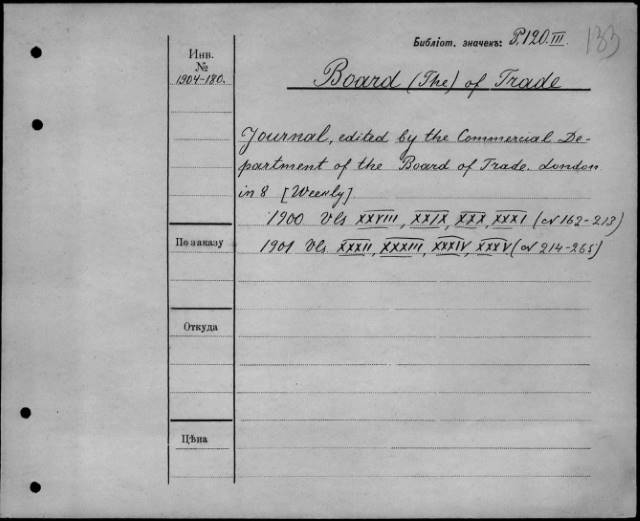 Библіот. значекъ: P.120.III. 133
Инв.
№
1904-180.
Board (The) of Trade
Journal, edited by the Commercial De-
partment of the Board of Trade. London
in 8 [Weekly]
1900 Vls XXVIII, XXIX, XXX, XXXI (№ 162-213)
По заказу
1901 Vls. XXXII, XXXIII, XXXIV, XXXV. (№ 214-265)
Откуда
Цѣна